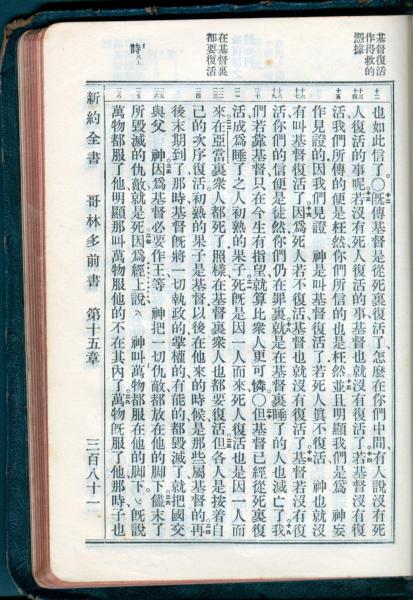 基督復活
作得救的
憑據
在基督裏
都要復活
也如此信了○旣傳基督是從死裏復活了怎麼在你們中間有人說沒有死
人復活的事呢若沒有死人復活的事基督也就沒有復活了若基督沒有復
活我們所傳的便是枉然你們所信的也是枉然並且明顯我們是爲 神妄
作見證的因我們見證 神是叫基督復活了若死人眞不復活 神也就沒
有叫基督復活了因爲死人若不復活基督也就沒有復活了基督若沒有復
活你們的信便是徒然你們仍在罪裏就是在基督裏睡了的人也滅亡了我
們若靠基督只在今生有指望就算比衆人更可憐○但基督已經從死裏復
活成爲睡了之人初熟的果子死旣是因一人而來死人復活也是因一人而
來在亞當裏衆人都死了照樣在基督裏衆人也都要復活但各人是按着自
己的次序復活初熟的果子是基督以後在他來的時候是那些屬基督的再
後末期到了那時基督旣將一切執政的掌權的有能的都毀滅了就把國交
與父 神因爲基督必要作王等 神把一切仇敵都放在他的脚下儘末了
所毀滅的仇敵就是死因爲經上說 神叫萬物都服在他的脚下旣說
萬物都服了他明顯那叫萬物服他的不在其內了萬物旣服了他那時子也
新約全書 哥林多前書 第十五章 三百八十二